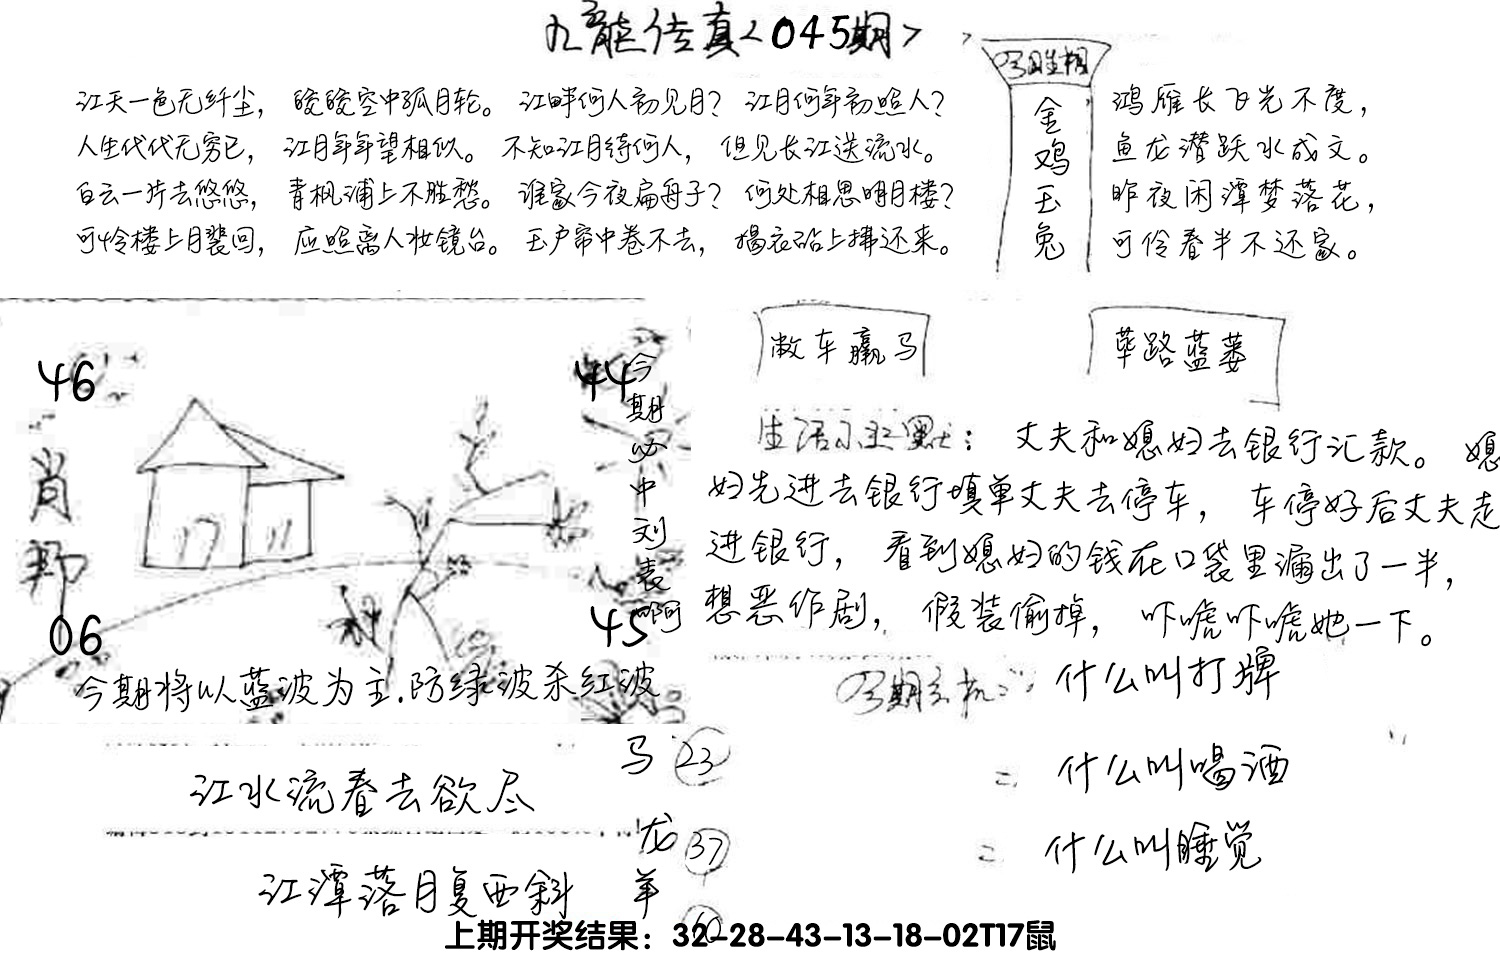 九龙传真<045期>
江天一色无纤尘，皎皎空中孤月轮。江畔何人初见月？江月何年初照人？
人生代代无穷已，江月年年望相似。不知江月待何人，但见长江送流水。
白云一片去悠悠，青枫浦上不胜愁。谁家今夜扁舟子？何处相思明月楼？
可怜楼上月裴回，应照离人妆镜台。玉户帘中卷不去，捣衣砧上拂还来。
金鸡玉兔
鸿雁长飞光不度，
鱼龙潜跃水成文。
昨夜闲潭梦落花，
可怜春半不还家。
46
44
肖
06
45
今期必中刘表啊
今期将以蓝波为主.防绿波杀红波
敝车羸马
荜路蓝蒌
生活小幽默：丈夫和媳妇去银行汇款。媳
妇先进去银行填单丈夫去停车，车停好后丈夫走
进银行，看到媳妇的钱在口袋里漏出了一半，
想恶作剧，假装偷掉，吓唬吓唬她一下。
什么叫打牌
二 什么叫喝酒
二 什么叫睡觉
江水流春去欲尽
江潭落月复西斜
马 23
龙 37
羊
上期开奖结果：32-28-43-13-18-02T17鼠